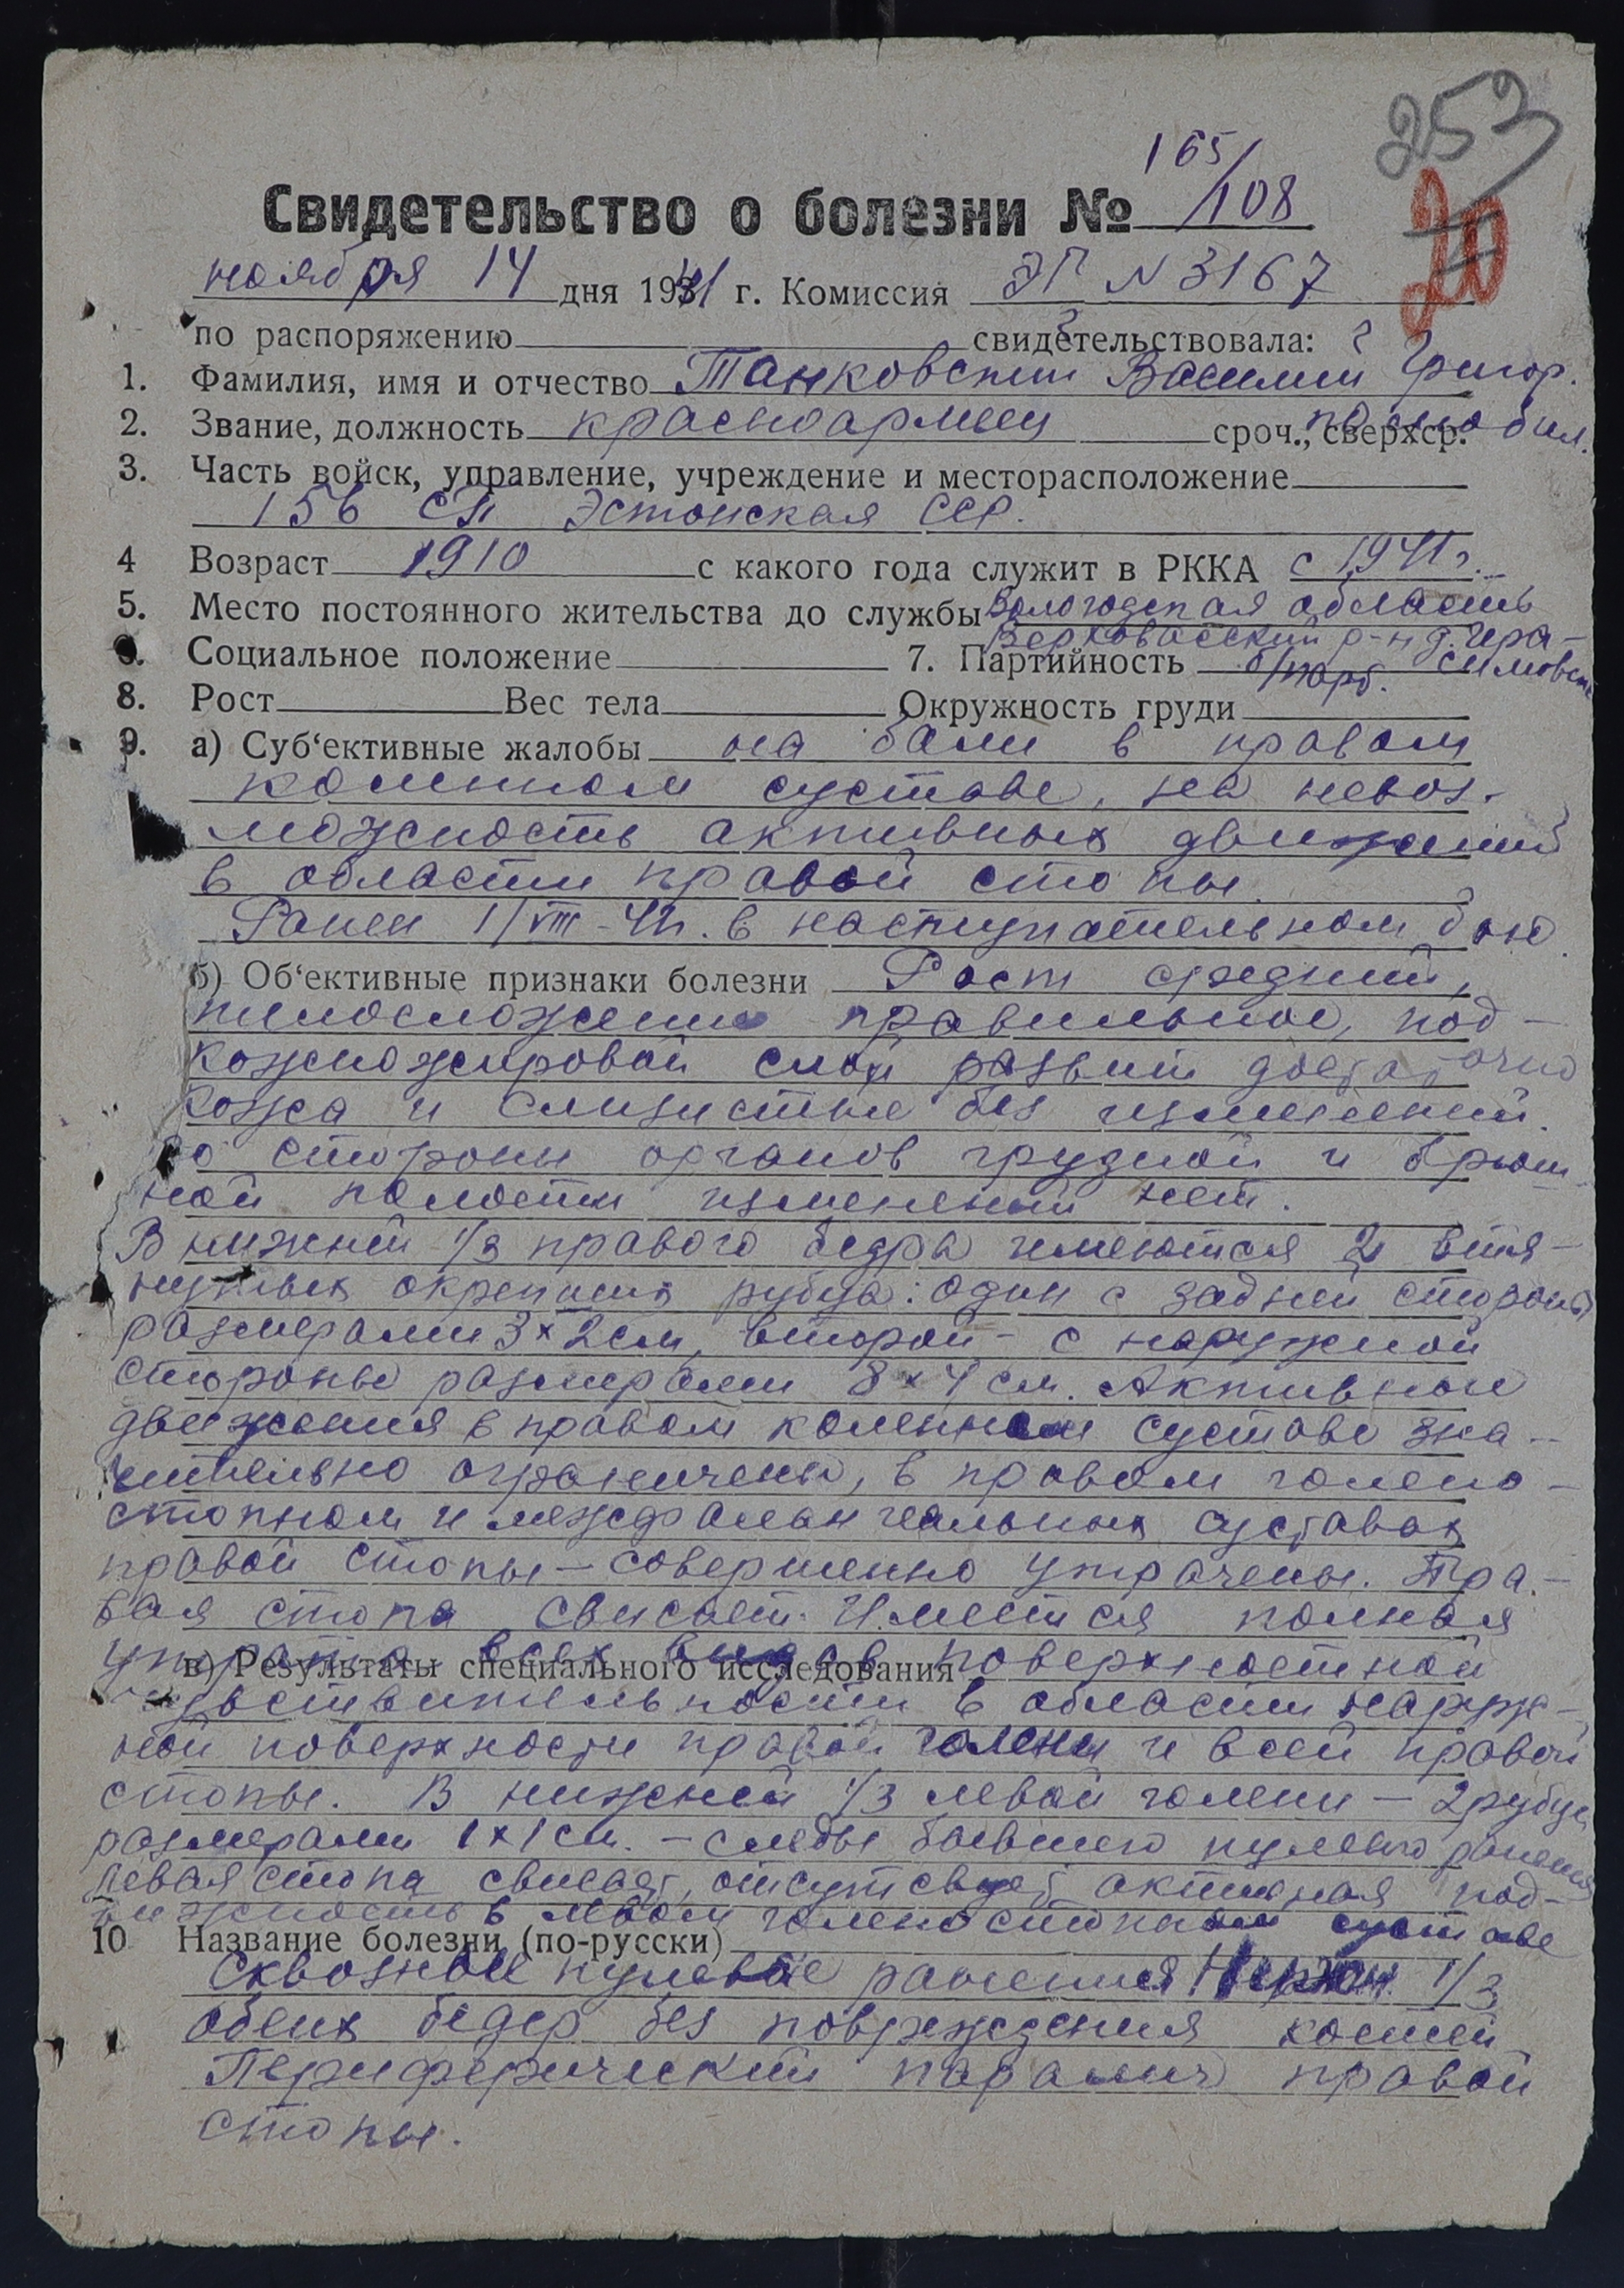 253
20
165/108
Свидетельство о болезни №
ноября 14 дня 1941 г. Комиссия ЭГ N 3167
по распоряжению свидетельствовала:
1. Фамилия, имя и отчество Танковский Василий Григор.
2. Звание, должность красноармеец сроч., сверхср. по мобил.
3. Часть войск, управление, учреждение и месторасположение
156 СП Эстонская ССР.
4 Возраст 1910 с какого года служит в РККА с 1941 г.
5. Место постоянного жительства до службы Вологодская область
Верховажский р-н д. Гера-
6. Социальное положение 7. Партийность б/парт. симовск
8. Рост Вес тела Окружность груди
9. а) Суб‘ективные жалобы на боли в правом
коленном суставе, на невоз-
можность активных движений
в области правой стопы.
Ранен 1/VIII-41г. в наступательном бою.
б) Об‘ективные признаки болезни Рост средний,
телосложение правильное, под-
кожножировой слой развит достаточно
Кожа и слизистые без изменений.
Со стороны органов грудной и брюш-
ной полости изменений нет.
В нижней 1/3 правого бедра имеются 2 втя-
нутых окрепших рубца: один с задней стороны
размерами 3×2см, второй - с наружной
стороны размерами 8×4 см. Активные
движения в правом коленном суставе зна-
чительно ограничены, в правом голено-
стопном и межфалангеальных суставах
правой стопы - совершенно утрачены. Пра-
вая стопа свисает. Имеется полная
утрата всех видов поверхностной
в) Результаты специального исследования
чувствительности в области наруж-
ной поверхности правой голени и всей правой
стопы. В нижней 1/3 левой голени - 2 рубца
размерами 1×1 см. - следы бывшего пулевого ранения
Левая стопа свисает, отсутствует активная под-
вижность в левом голеностопном суставе
10 Название болезни (по-русски)
Сквозные пулевые ранения нижн. 1/3
обеих бедер без повреждения костей
Периферический паралич правой
стопы.